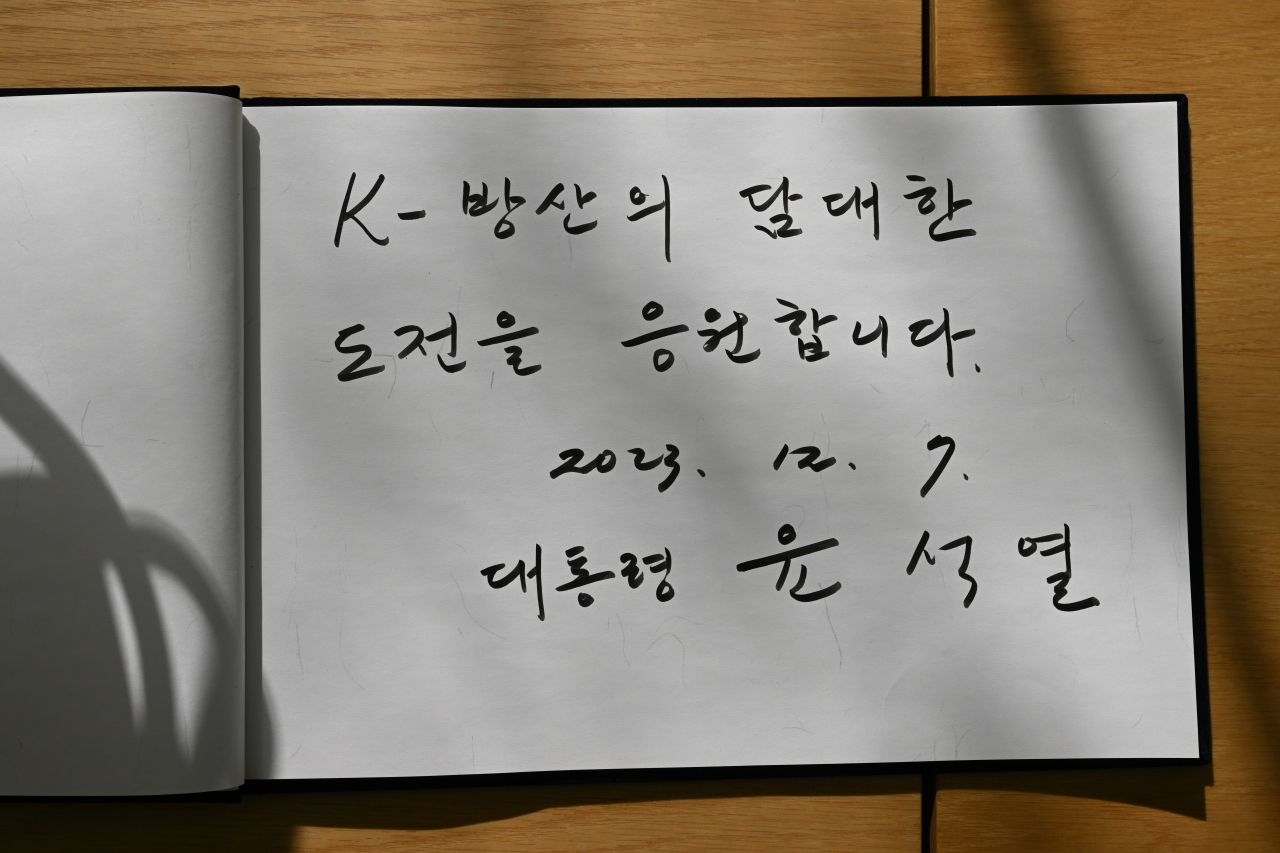 K-방산의 담대한
도전을 응원합니다.
2023. 12. 7.
대통령 윤석열